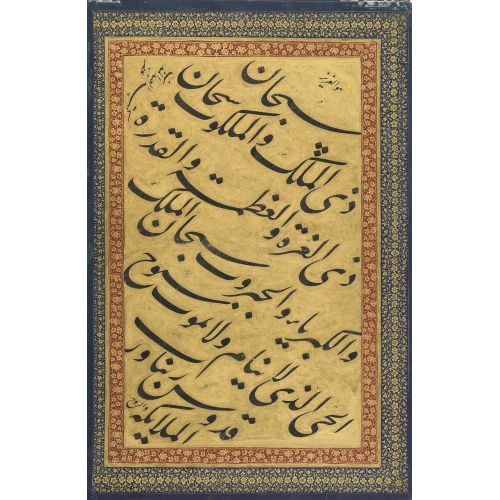 سبحان
ذی الملک والملکوت سبحان
ذی العزة والعظمة والقدرة
والکبریاء والجبروت سبحان الملک
الحی الذی لا ینام ولا یموت سبوح
قدوس ربنا ورب
الملائکة والروح